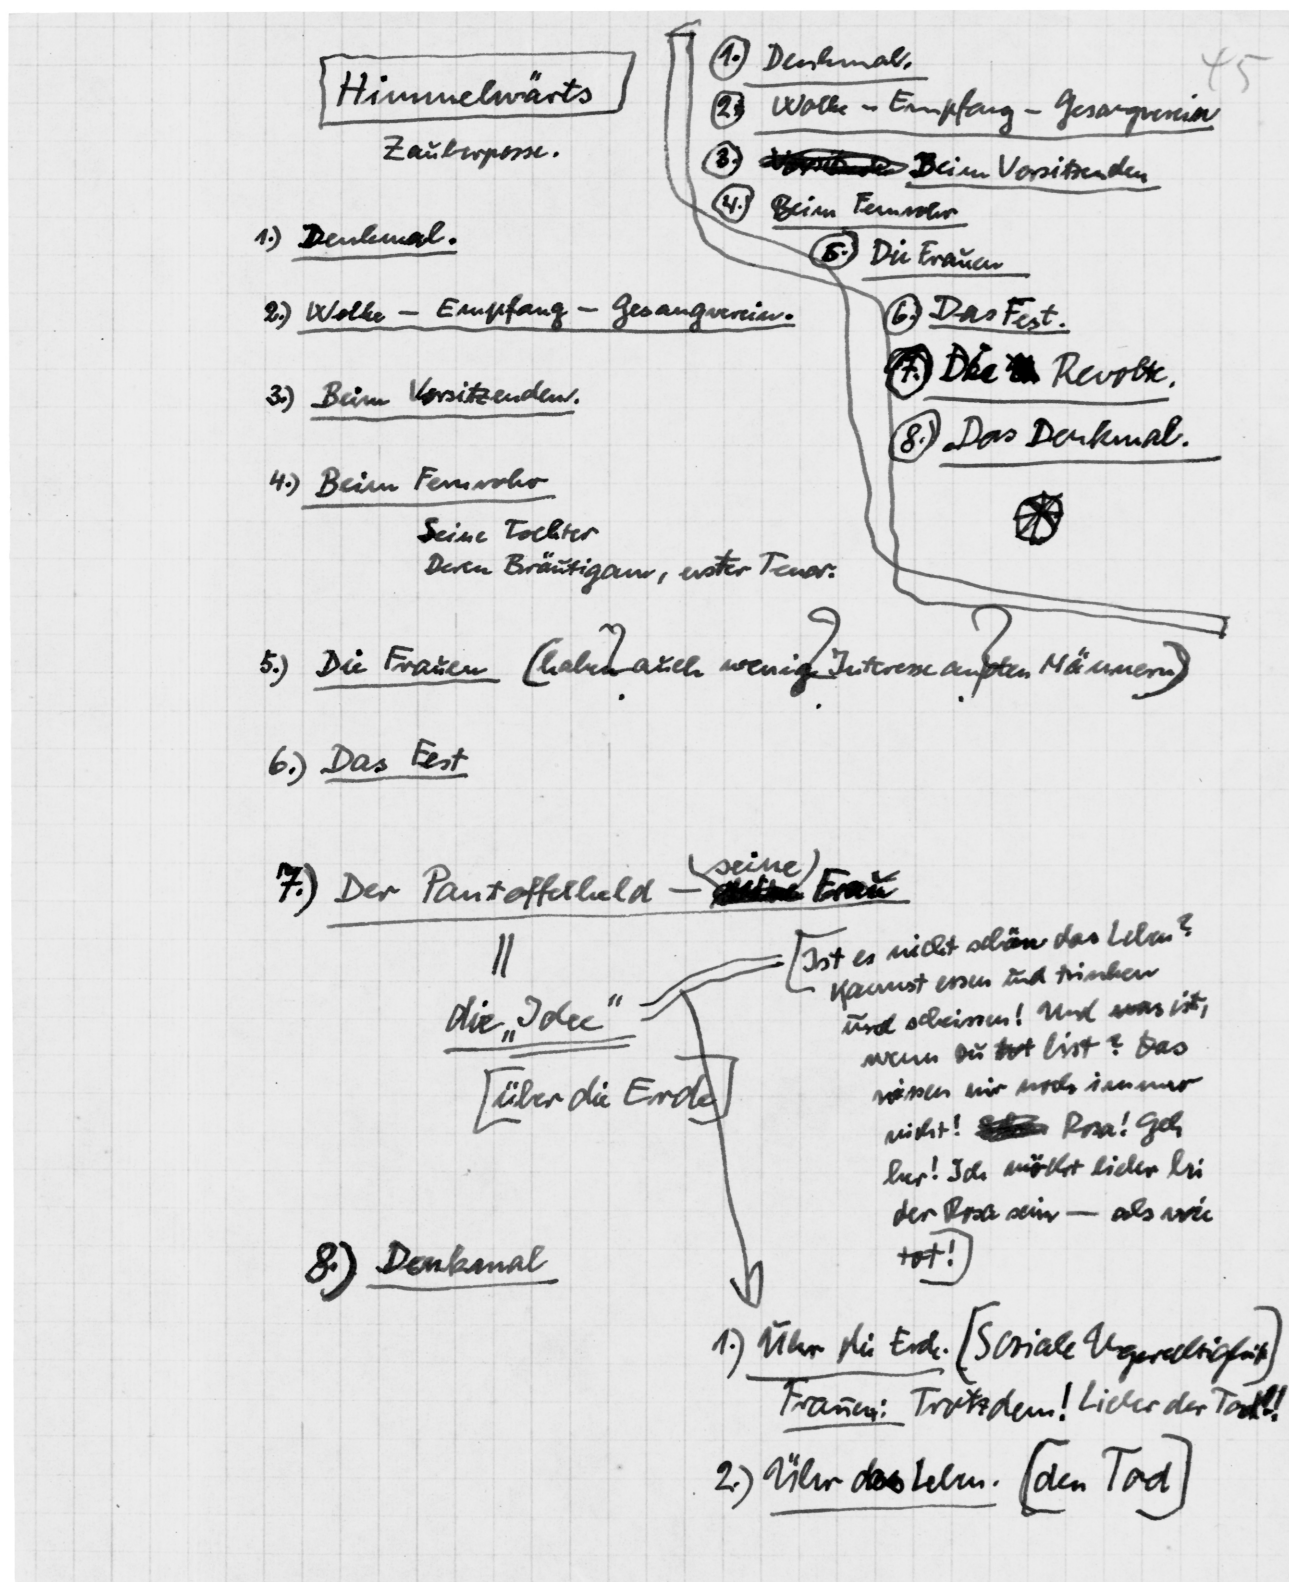 45
Himmelwärts
Zauberposse.
1.) Denkmal.
2.) Wolke – Empfang – Gesangverein.
3.) Beim Vorsitzenden.
4.) Beim Fernrohr
Seine Tochter
Deren Bräutigam, erster Tenor.
5.) Die Frauen (haben auch wenig Interesse an den Männern)
? ? ?
6.) Das Fest
7.) Der Pantoffelheld – seine Frau
||
die „Idee"
[über die Erde]
8.) Denkmal
1.) Denkmal.
2.) Wolke – Empfang – Gesangverein
3.) Beim Vorsitzenden
4.) Beim Fernrohr
5.) Die Frauen
6.) Das Fest.
7.) Die Revolte.
8.) Das Denkmal.
[Ist es nicht schön das Leben?
Kannst essen und trinken
und scheissen! Und was ist,
wenn Du tot bist? Das
wissen wir noch immer
nicht! Rosa! Geh
her! Ich möcht lieber bei
der Rosa sein – als wie
tot!]
1.) Über die Erde. [Soziale Ungerechtigkeit]
Frauen: Trotzdem! Lieber der Tod!!
2.) Über das Leben. [den Tod]